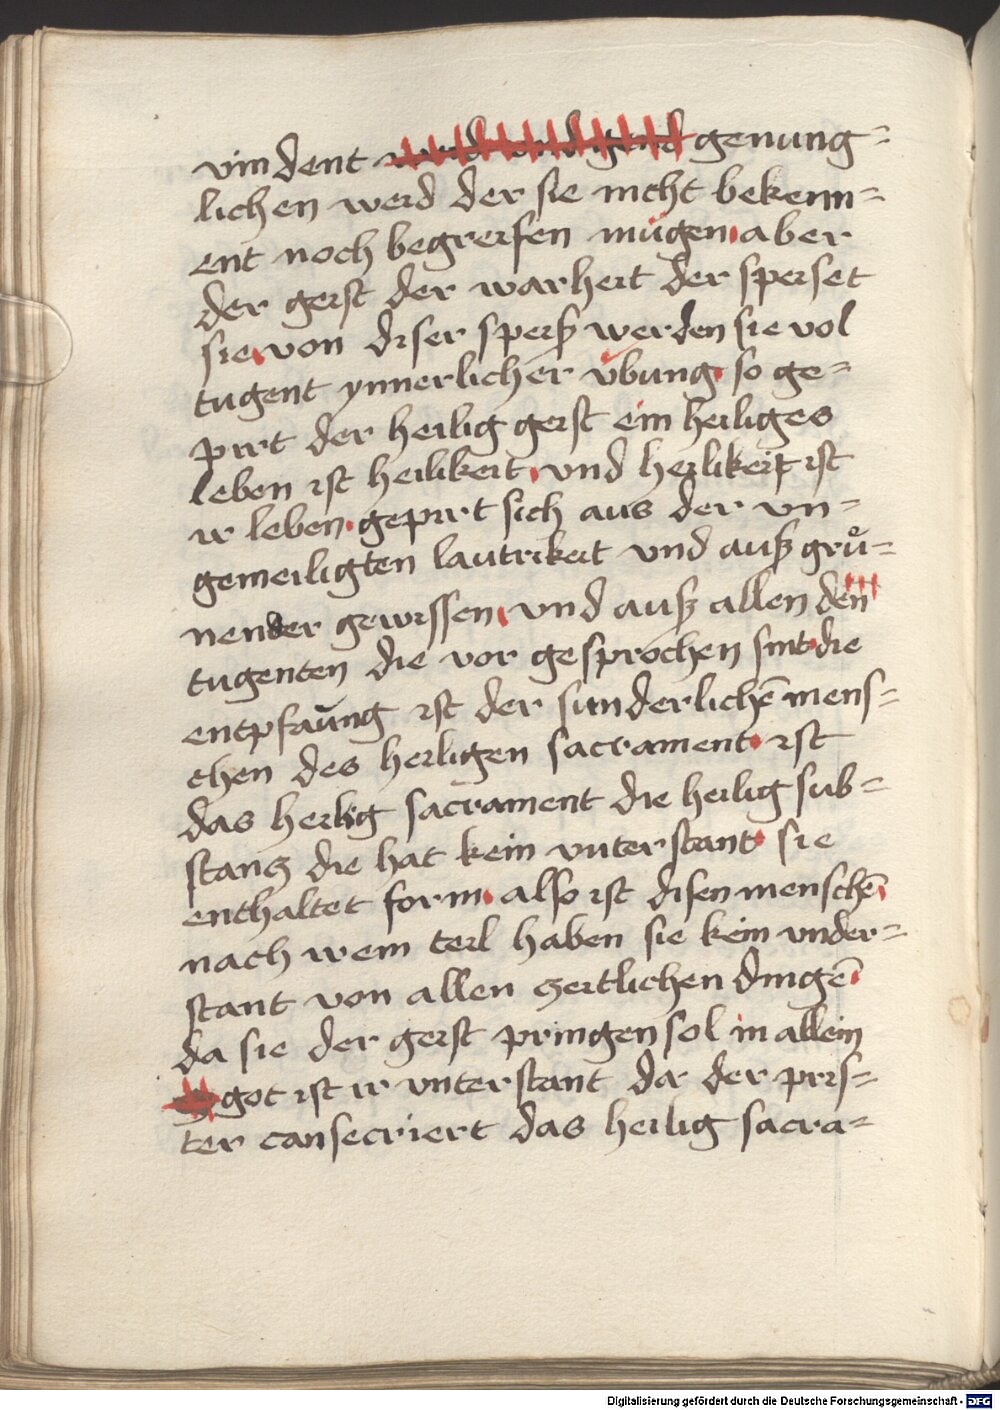 vindent genung=
lichen werd der sie nicht bekenn=
ent noch begreifen mügen aber
der geist der warheit der speiset
sie von diser speiß werden sie vol
tugent ynnerlicher vbung so ge=
pirt der heilig geist ein heiliges
leben ist heilikeit vnd heilikeit ist
ir leben gepirt sich aus der vn=
gemeiligten lautrikeit vnd auß grů=
nender gewissen vnd auß allen den
tugenten die vor gesprochen sint die
entpfaung ist der sunderlichē mens=
chen des heiligen sacrament ist
das heilig sacrament die heilig sub=
stanz die hat kein vnterstant sie
enthaltet form also ist disen menschē
nach irem teil haben sie kein vnder=
stant von allen zeitlichen dingē
da sie der geist pringen sol in allein
got ist ir vnterstant da der pris=
ter cansecriert das heilig sacra=
Digitalisierung gefördert durch die Deutsche Forschungsgemeinschaft - DFG